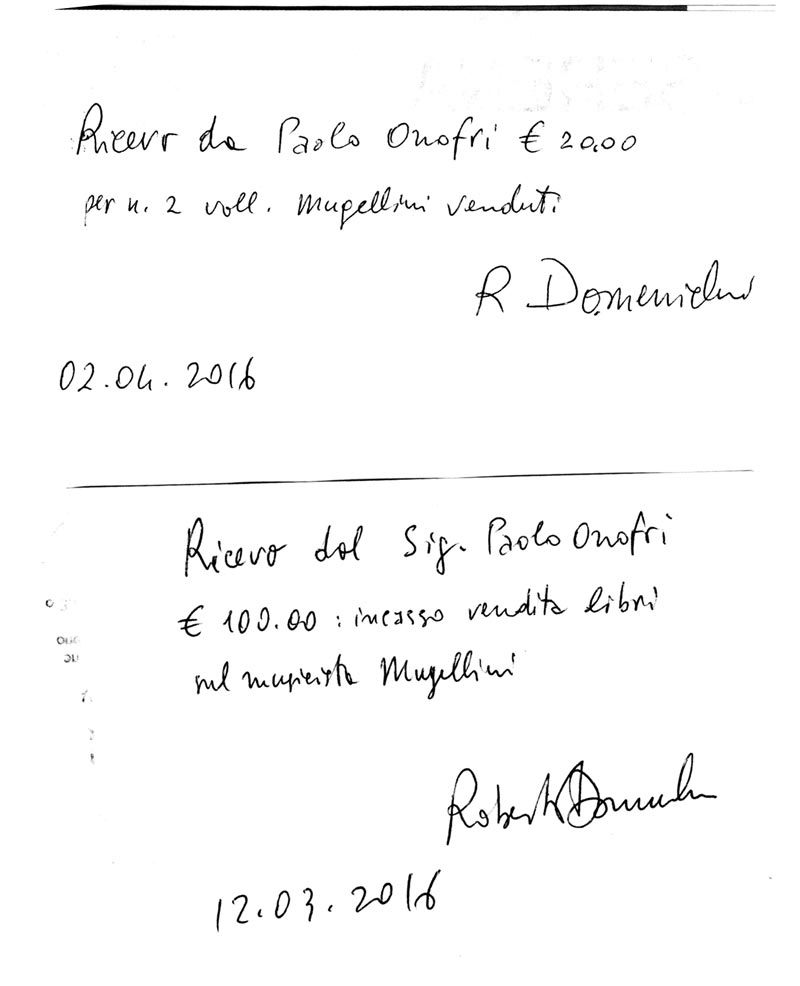 Ricevo da Paolo Onofri € 20.00
per n. 2 voll. Mugellini venduti
R Domenichini
02.04.2016
Ricevo dal Sig. Paolo Onofri
€ 100.00 : incasso vendita libri
sul musicista Mugellini
Roberto
12.03.2016